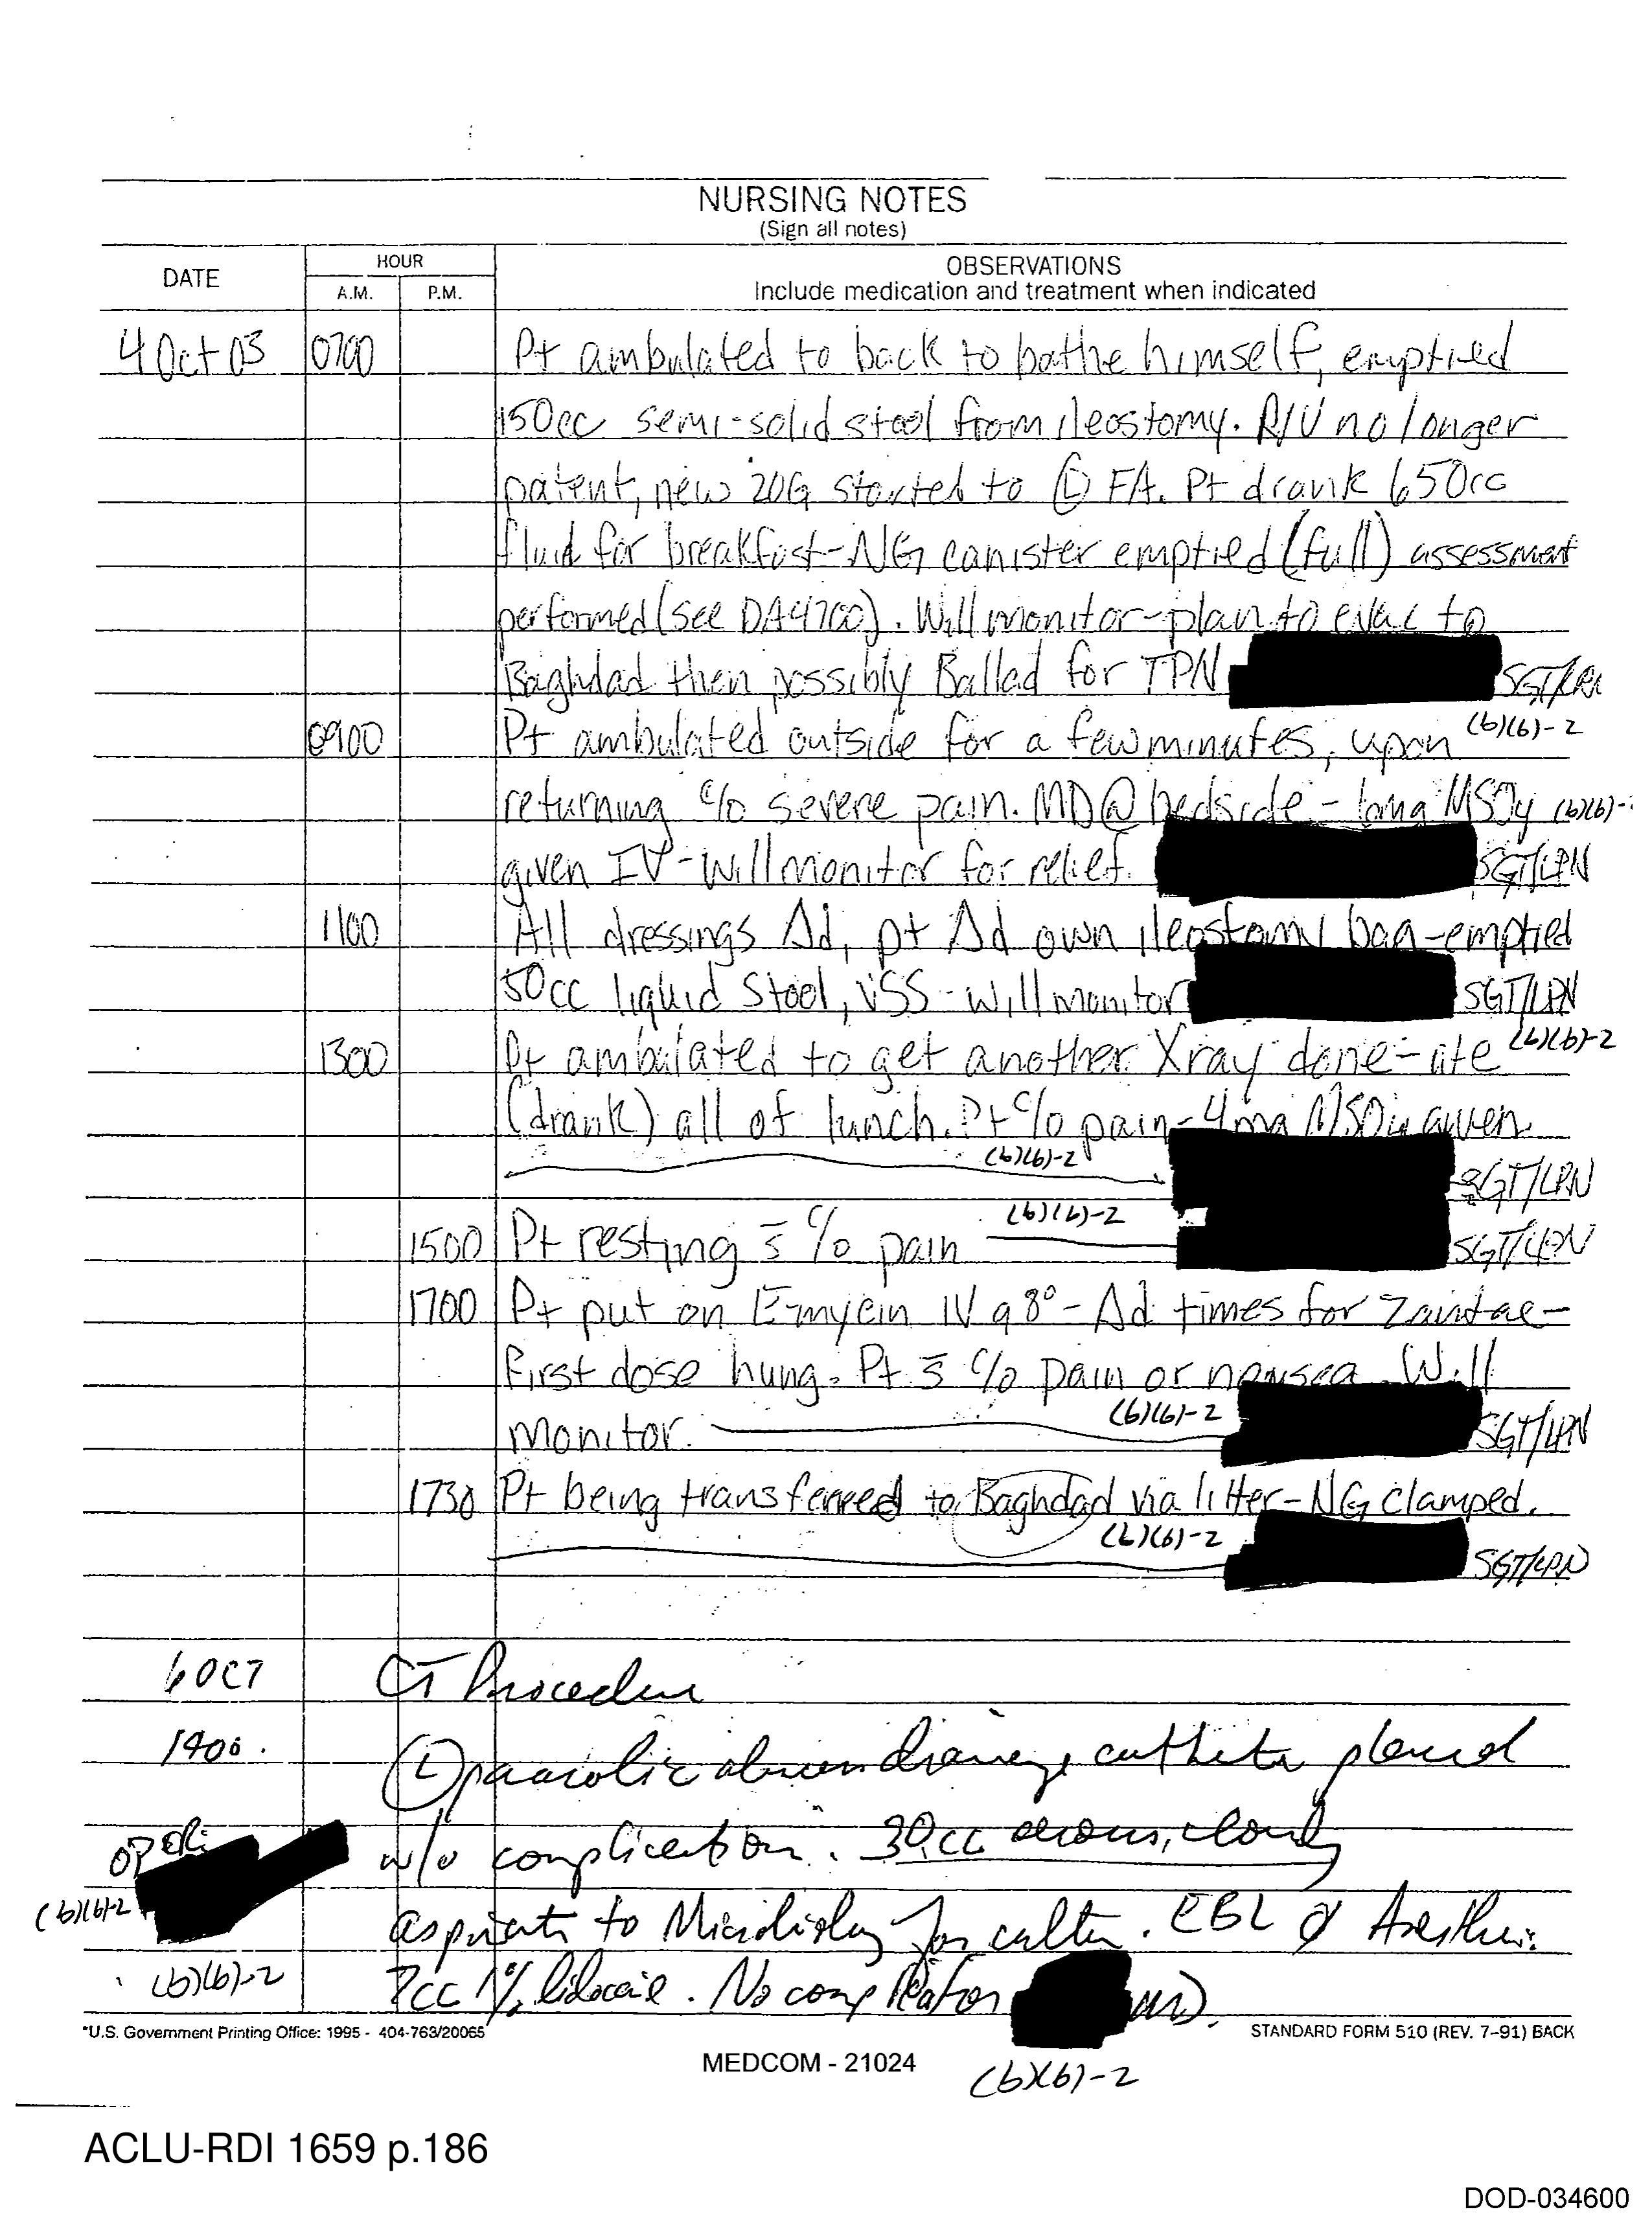 NURSING NOTES
(Sign all notes)
DATE
HOUR
A.M.
P.M.
OBSERVATIONS
Include medication and treatment when indicated
4 Oct 03 0700 Pt ambulated to back to bathe himself, emptied
150cc semi-solid stool from ileostomy. R/IV no longer
patent, new 20G started to Ⓛ FA. Pt drank 650cc
fluid for breakfast - NG canister emptied (full) assessment
performed (see DA4700). Will monitor - plan to evac to
Baghdad then possibly Ballad for TPN SGT/LPN
(b)(6)-2
0900 Pt ambulated outside for a few minutes, upon
returning c/o severe pain. MD @ bedside - MSO4 (b)(6)-
given IV - will monitor for relief. SGT/LPN
1100 All dressings Δd, pt Δd own ileostomy bag - emptied
50cc liquid stool, VSS - will monitor SGT/LPN
(b)(6)-2
1300 Pt ambulated to get another Xray done - ate
(drank) all of lunch. Pt c/o pain - 4mg MSO4 given.
(b)(6)-2 SGT/LPN
(b)(6)-2
1500 Pt resting s̄ c/o pain SGT/LPN
1700 Pt put on E-mycin IV q 8° - Δd times for Zantac -
first dose hung. Pt s̄ c/o pain or nausea. Will
monitor. (b)(6)-2 SGT/LPN
1730 Pt being transferred to Baghdad via litter - NG clamped.
(b)(6)-2 SGT/LPN
6 OCT CT Procedure
1400. Ⓛ paracolic drainage catheter placed
w/o complication. 30cc serous, cloudy
(b)(6)-2
aspirate to Microbiology for culture. EBL Ø
(b)(6)-2 7cc 1% lidocaine. No complication MD.
*U.S. Government Printing Office: 1995 - 404-763/20065
STANDARD FORM 510 (REV. 7-91) BACK
MEDCOM - 21024
(b)(6)-2
ACLU-RDI 1659 p.186
DOD-034600